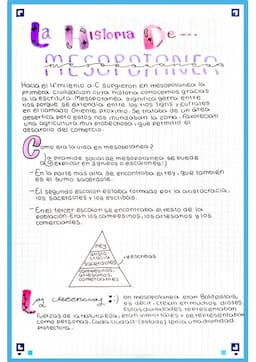 La Historia De...
MESOPOTAMIA
Hacia el 4º milenio a.C surgieron en mesopotamia la
primera civilización cuya historia conocemos gracias
a la escritura. Mesopotamia significa tierra entre
ríos porque se extendía entre los ríos Tigris y Éufrates
en el llamado Oriente próximo. Se trataba de un área
desértica pero estos ríos inundaban la zona, favorecían
una agricultura muy que permitió el
desarollo del comercio.
Como era la vida en mesopotamia?
La pirámide social de mesopotamia se puede
explicar en 3 grupos o escalones:)
-En la parte más alta se encontraba el rey, que también
es el sumo sacerdote.
-El segundo escalon estaba formada por la aristocracia,
los sacerdotes y los escribas.
-En el tercer escalon se encontraba el resto de la
población. Eran los campesinos, los artesanos y los
comerciantes.
rey
aristocracia
sacerdotes
→escribas
campesinos,
artesanos,
comerciantes
Las creencias :) en mesopotamia eran politeístas,
es decir, creían en muchos dioses
Estas divinidades representaban
fuerzas de la naturaleza, eran inmortales y se representaban
como personas. Cada ciudad (estado) tenía una divinidad
protectora.